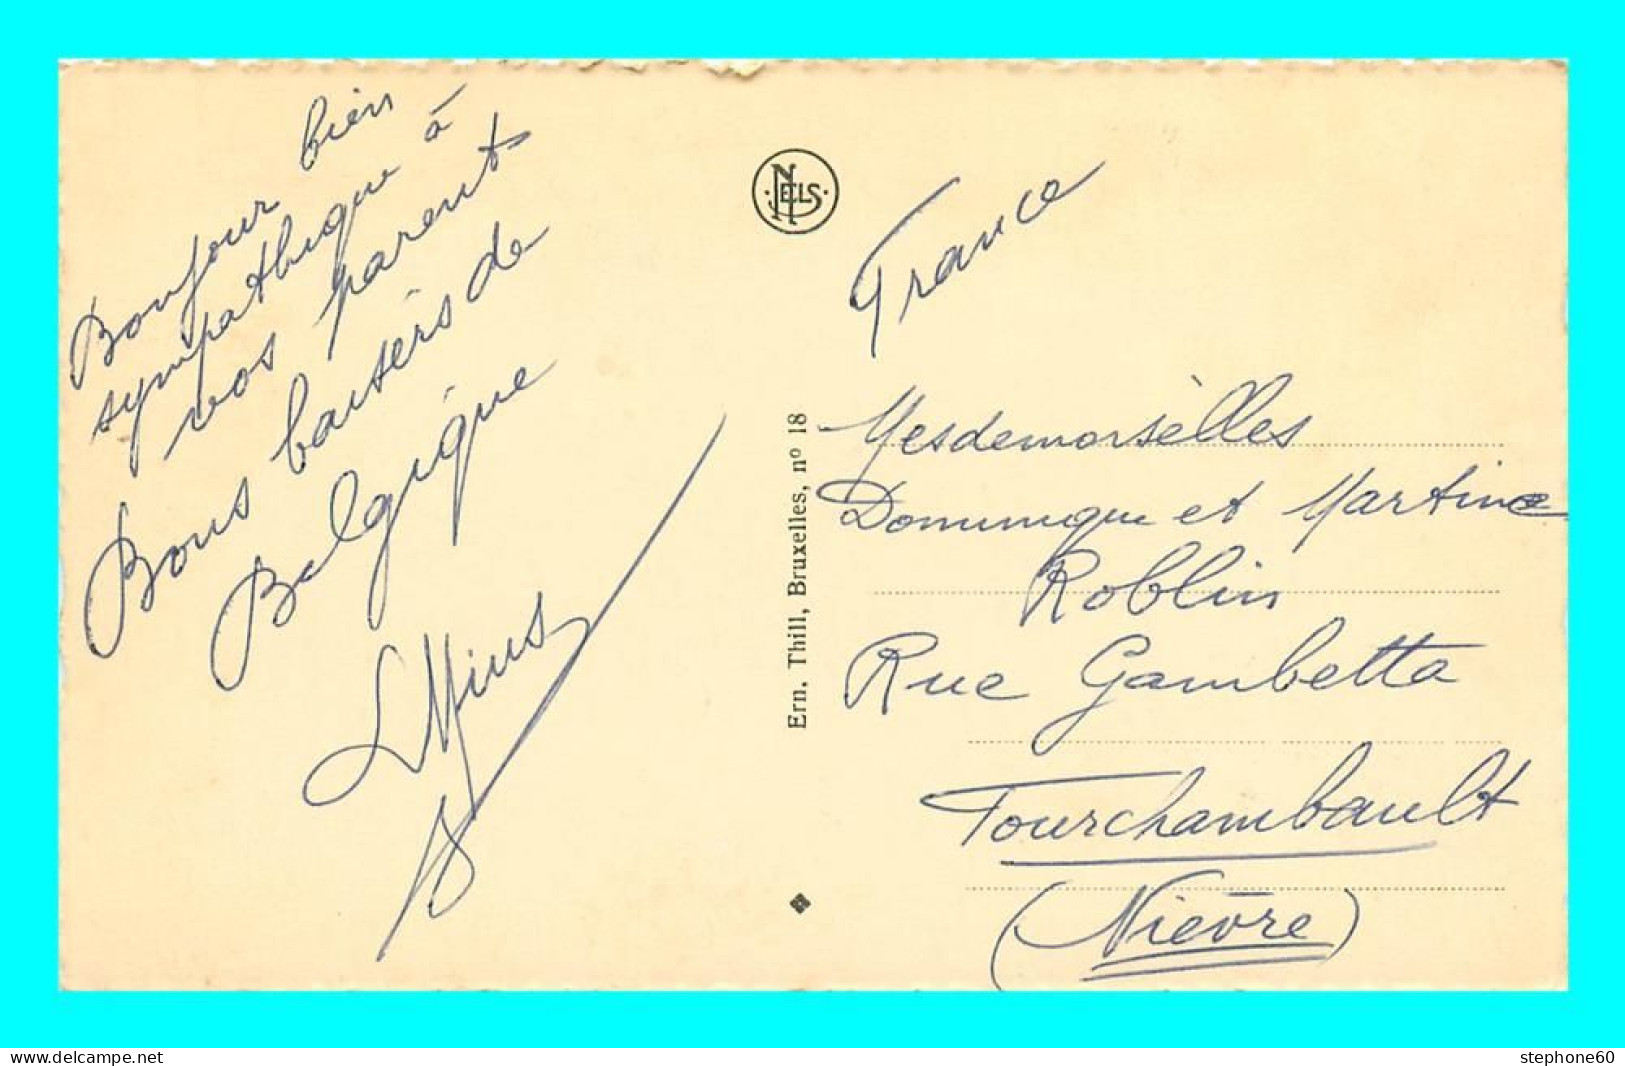 Bonjour bien
sympathique à
vos parents
Bons baisers de
Belgique
LMius
NELS
Ern. Thill, Bruxelles, nº 18
France
Mesdemoisèlles
Dominique et Martine
Roblin
Rue Gambetta
Fourchambault
(Nièvre)
www.delcampe.net
stephone60